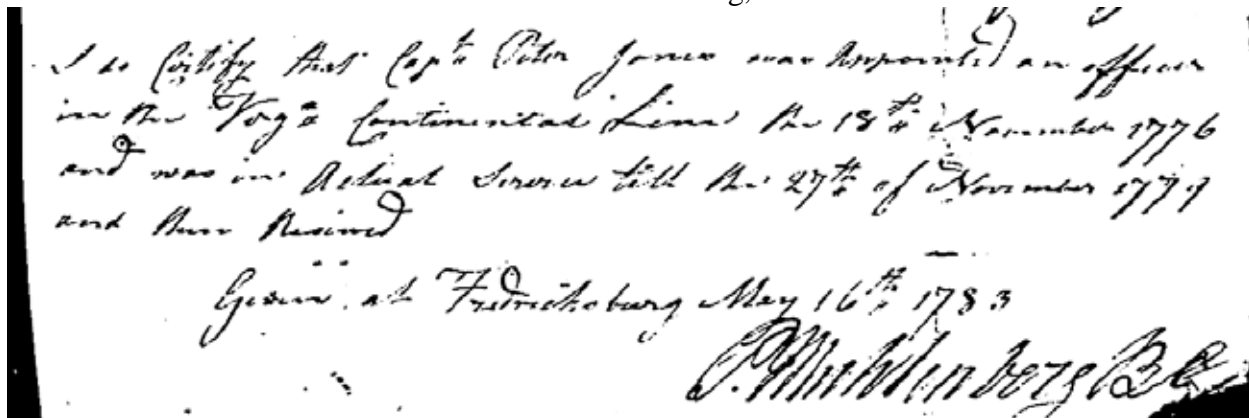 I do Certify that Capt. Peter Jones was Appointed an officer
in the Virga Continental Line the 18th November 1776
and was in Actual Service till the 27th of November 1779
and then Resined
Given at Fredricksburg May 16th 1783
P. Muhlenberg B G